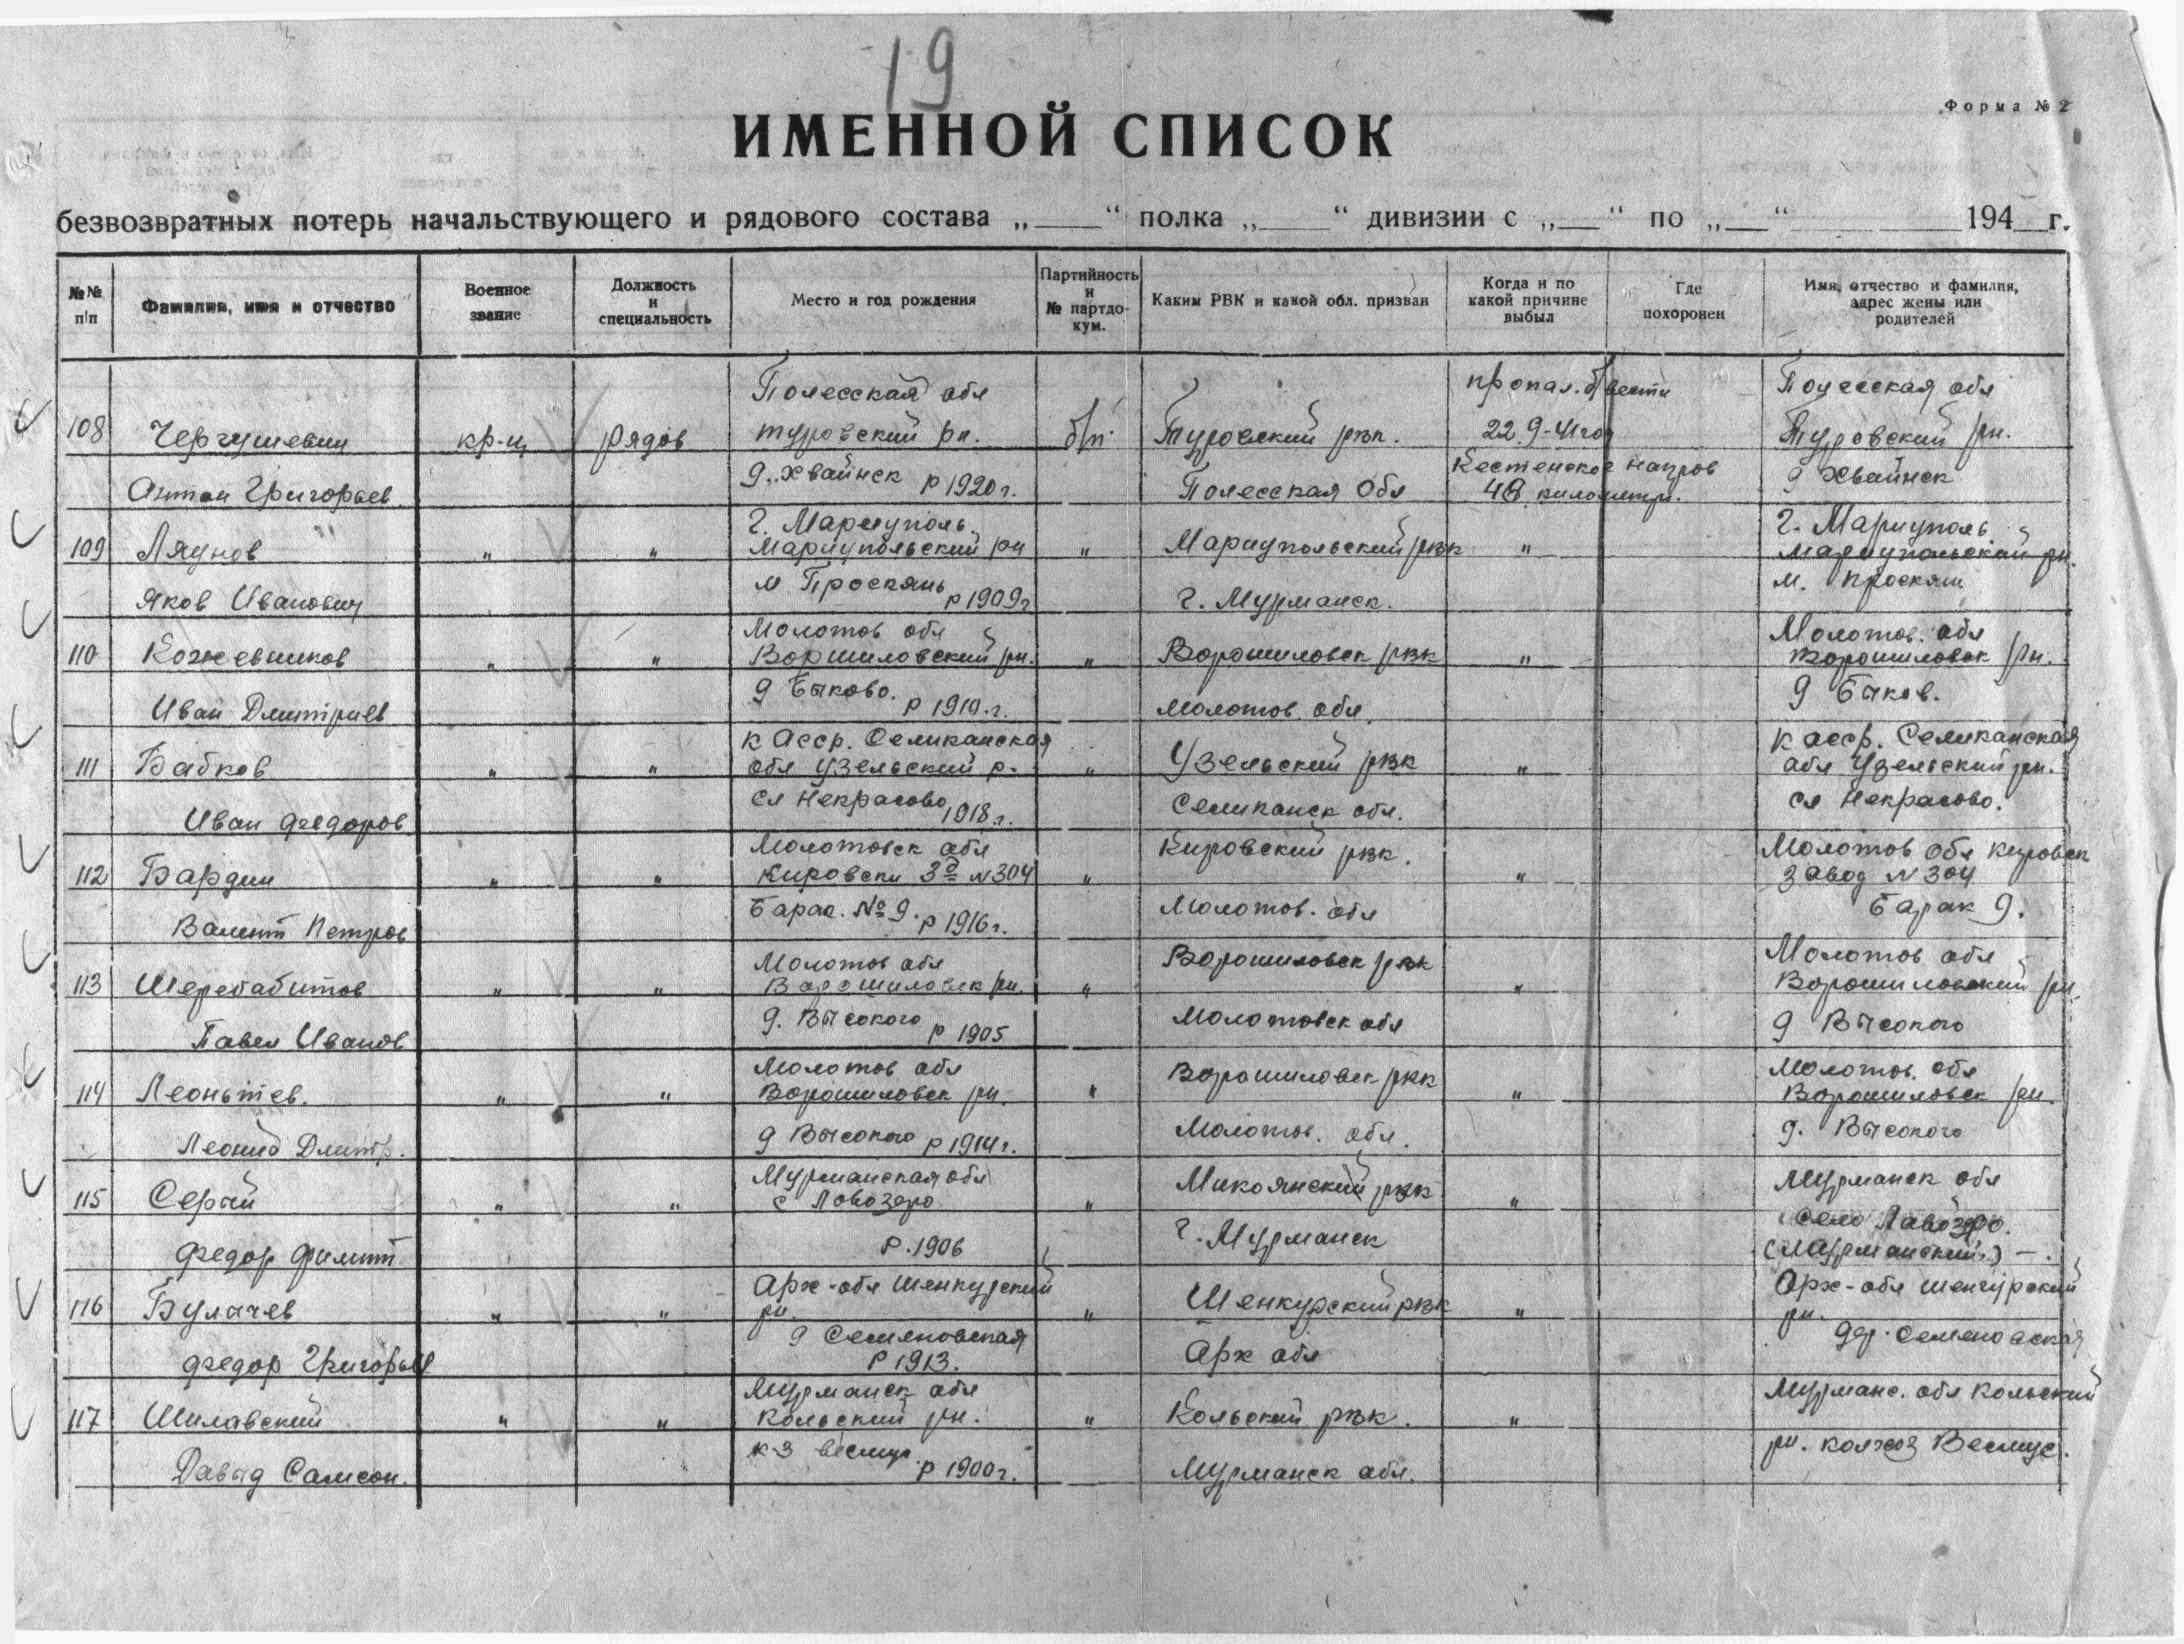 19
Форма № 2
ИМЕННОЙ СПИСОК
безвозвратных потерь начальствующего и рядового состава „____“ полка „____“ дивизии с „___“ по „___“ ________ 194__ г.
№№ п/п
Фамилия, имя и отчество
Военное звание
Должность и специальность
Место и год рождения
Партийность и № партдокум.
Каким РВК и какой обл. призван
Когда и по какой причине выбыл
Где похоронен
Имя, отчество и фамилия, адрес жены или родителей
Полесская обл пропал. б/вести Полесская обл
108 Чергушевич кр-ц рядов туровский рн. б/п Туровский рвк. 22.9-41год Туровский рн.
Антон Григорьев д. Хвайнск р 1920 г. Полесская Обл Кестенское напров 48 километр. д Хвайнск
г. Мариуполь г. Мариуполь
109 Ляунов " " Мариупольский рн " Мариупольский рвк " Мариупольский рн.
Яков Иванович р 1909 г г. Мурманск. м.
Молотов обл Молотов. обл
110 Кожевников " " Воршиловский рн. " Ворошиловск рвк " Ворошиловск рн.
Иван Дмитриев д Быково. р 1910. г. Молотов. обл. д Быков.
К Асср. Селиканская К асср. Селиканская
111 Бабков " " обл Узельский р. " Узельский рвк " обл Узельский рн.
Иван Федоров сл Некрасово 1918 г. Селиканск обл. сл Некрасово.
Молотовск обл Кировский рвк. Молотов обл Кировск
112 Бардин " " Кировски 3д N 304 " " Завод N 304
Валент Петров Барак. № 9. р 1916 г. Молотов. обл Барак 9.
Молотов обл Ворошиловск рвк Молотов обл
113 Шеребабитов " " Ворошиловск рн. " " Ворошиловский рн.
Павел Иванов д. Высокого р 1905 Молотовск обл д Высокого
Молотов обл Ворошиловск рвк Молотов. обл
114 Леоньтев. " " Ворошиловск рн. " " Ворошиловск рн
Леонид Дмитр. д Высокого р 1914 г. Молотов. обл. д. Высокого
Мурманская обл Микоянский рвк Мурманск обл
115 Серый " " с Ловозеро " " Село Лавозеро.
Федор Филипп р. 1906 г. Мурманск (Мурманский) —.
Арх-обл Шенкурский Арх-обл шенкурский
116 Булачев " " рн. " Шенкурский рвк " рн.
Федор Григорьев д Семеновская р 1913. Арх обл дер. Семеновская
Мурманск обл Мурманс. обл Кольский
117 Шилавский " " Кольский рн. " Кольский рвк. " рн. колхоз
Давыд Самсон. к-з р 1900 г. Мурманск обл.